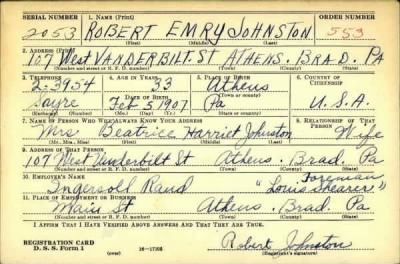 SERIAL NUMBER 1. NAME (Print) ORDER NUMBER
2053 ROBERT EMRY JOHNSTON 553
(First) (Middle) (Last)
2. ADDRESS (Print)
107 West VANDERBILT. St ATHENS. BRAD. PA
(Number and street or R. F. D. number) (Town) (County) (State)
3. TELEPHONE 4. AGE IN YEARS 5. PLACE OF BIRTH 6. COUNTRY OF CITIZENSHIP
2-3954 33 Athens
DATE OF BIRTH (Town or county)
Sayre Feb 5 1907 Pa U.S.A.
(Exchange) (Number) (Mo.) (Day) (Yr.) (State or country)
7. NAME OF PERSON WHO WILL ALWAYS KNOW YOUR ADDRESS 8. RELATIONSHIP OF THAT PERSON
Mrs Beatrice Harriet Johnston Wife
(Mr., Mrs., Miss) (First) (Middle) (Last)
9. ADDRESS OF THAT PERSON
107 West Vanderbilt St Athens. Brad. Pa
(Number and street or R. F. D. number) (Town) (County) (State)
10. EMPLOYER'S NAME Foreman
Ingersoll Rand "Louis Shearer"
11. PLACE OF EMPLOYMENT OR BUSINESS
Main St Athens. Brad. Pa
(Number and street or R. F. D. number) (Town) (County) (State)
I AFFIRM THAT I HAVE VERIFIED ABOVE ANSWERS AND THAT THEY ARE TRUE.
Robert Johnston
REGISTRATION CARD
D. S. Form 1 (over) (Registrant's signature)